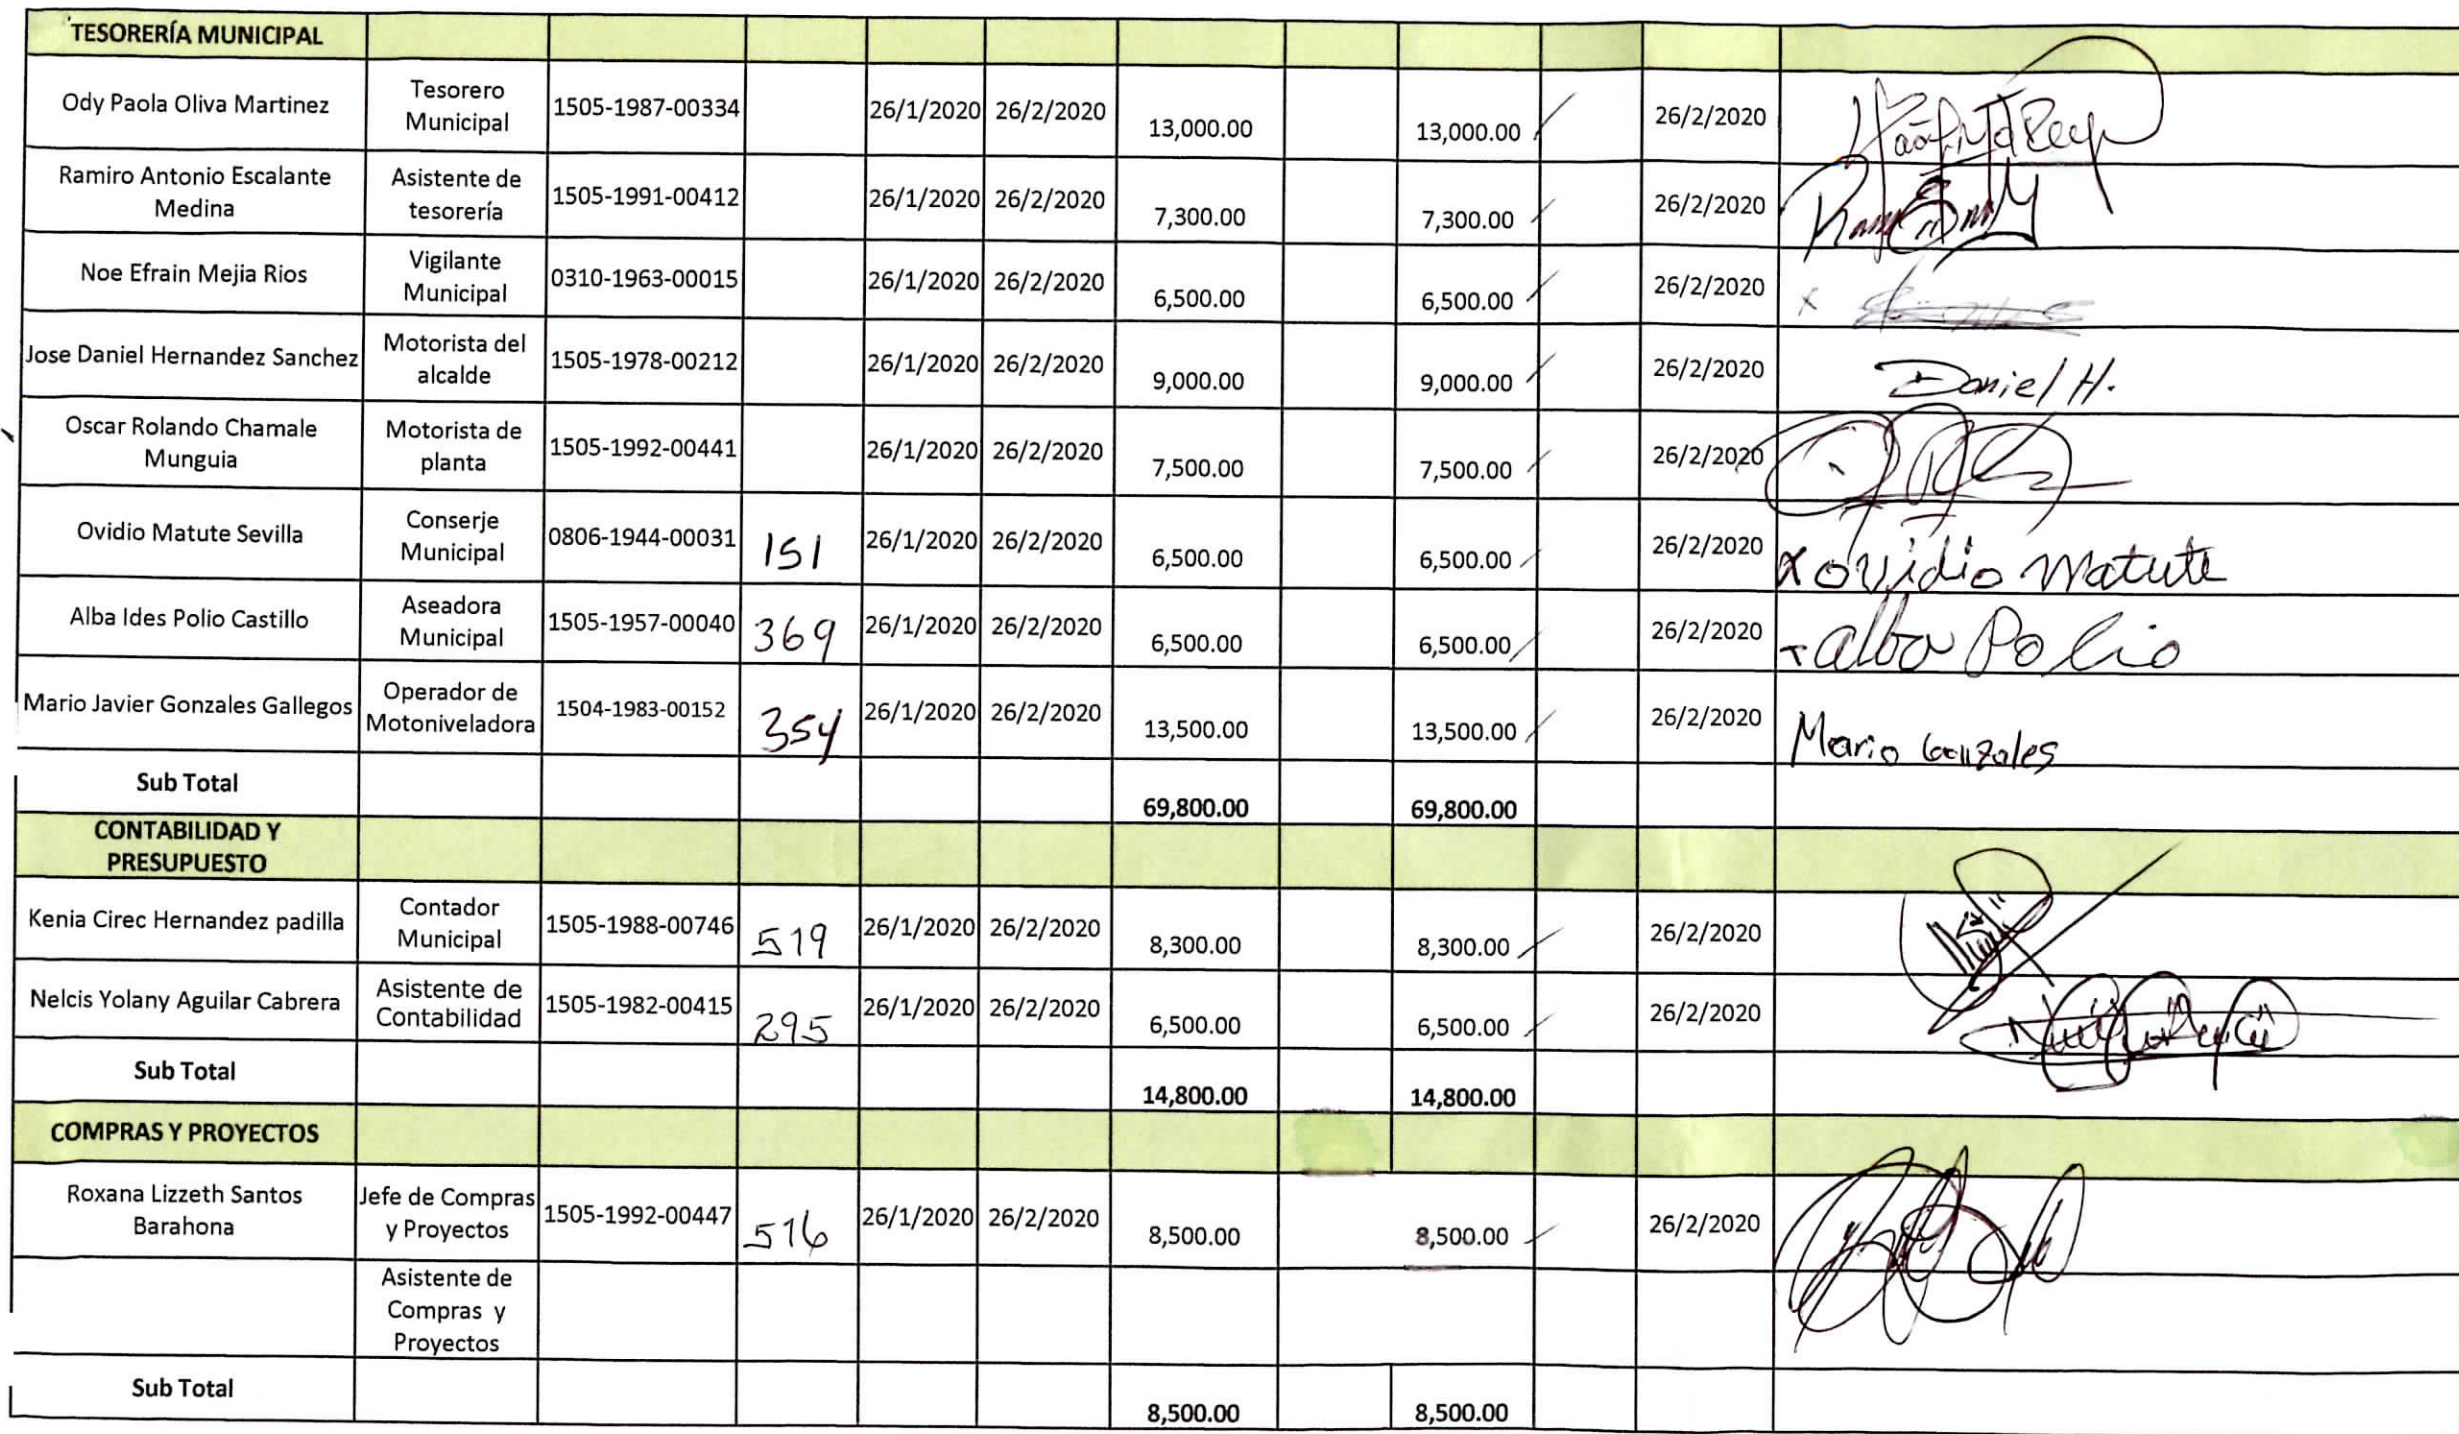 TESORERÍA MUNICIPAL
Ody Paola Oliva Martinez Tesorero Municipal 1505-1987-00334 26/1/2020 26/2/2020 13,000.00 13,000.00 26/2/2020
Ramiro Antonio Escalante Medina Asistente de tesorería 1505-1991-00412 26/1/2020 26/2/2020 7,300.00 7,300.00 26/2/2020
Noe Efrain Mejia Rios Vigilante Municipal 0310-1963-00015 26/1/2020 26/2/2020 6,500.00 6,500.00 26/2/2020 x
Jose Daniel Hernandez Sanchez Motorista del alcalde 1505-1978-00212 26/1/2020 26/2/2020 9,000.00 9,000.00 26/2/2020 Daniel H.
Oscar Rolando Chamale Munguia Motorista de planta 1505-1992-00441 26/1/2020 26/2/2020 7,500.00 7,500.00 26/2/2020
Ovidio Matute Sevilla Conserje Municipal 0806-1944-00031 151 26/1/2020 26/2/2020 6,500.00 6,500.00 26/2/2020 x Ovidio Matute
Alba Ides Polio Castillo Aseadora Municipal 1505-1957-00040 369 26/1/2020 26/2/2020 6,500.00 6,500.00 26/2/2020 x alba Polio
Mario Javier Gonzales Gallegos Operador de Motoniveladora 1504-1983-00152 354 26/1/2020 26/2/2020 13,500.00 13,500.00 26/2/2020 Mario Gonzales
Sub Total 69,800.00 69,800.00
CONTABILIDAD Y
PRESUPUESTO
Kenia Cirec Hernandez padilla Contador Municipal 1505-1988-00746 519 26/1/2020 26/2/2020 8,300.00 8,300.00 26/2/2020
Nelcis Yolany Aguilar Cabrera Asistente de Contabilidad 1505-1982-00415 295 26/1/2020 26/2/2020 6,500.00 6,500.00 26/2/2020
Sub Total 14,800.00 14,800.00
COMPRAS Y PROYECTOS
Roxana Lizzeth Santos Barahona Jefe de Compras y Proyectos 1505-1992-00447 516 26/1/2020 26/2/2020 8,500.00 8,500.00 26/2/2020
Asistente de
Compras y
Proyectos
Sub Total 8,500.00 8,500.00